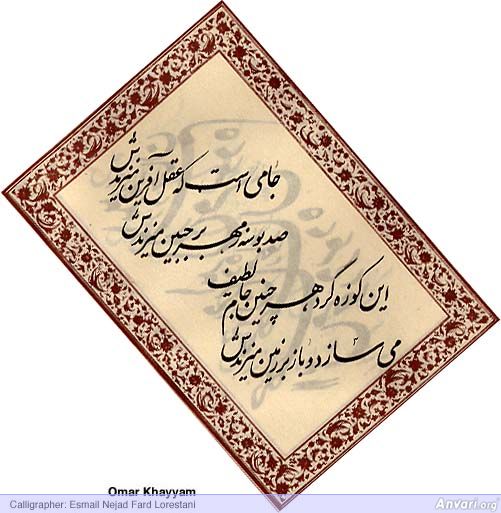 جامی است که عقل آفرین میزندش
صد بوسه ز مهر بر جبین میزندش
این کوزه گر دهر چنین جام لطیف
می سازد و باز بر زمین میزندش
Omar Khayyam
Calligrapher: Esmail Nejad Fard Lorestani
Anvari.org